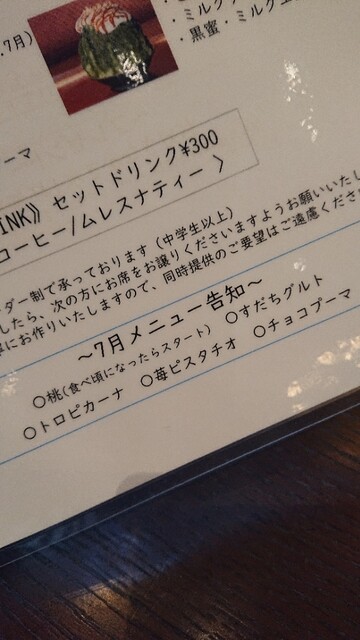 .7月)
・ミルク
・黒蜜・ミルク
ーマ
INK》 セットドリンク¥300
コーヒー/ムレスナティー 〉
ダー制で承っております (中学生以上)
したら、次の方にお席をお譲りくださいますようお願いいたし
にお作りいたしますので、同時提供のご要望はご遠慮くださ
～7月メニュー告知～
○桃(食べ頃になったらスタート) ○すだちグルト
○トロピカーナ ○苺ピスタチオ ○チョコブーマ